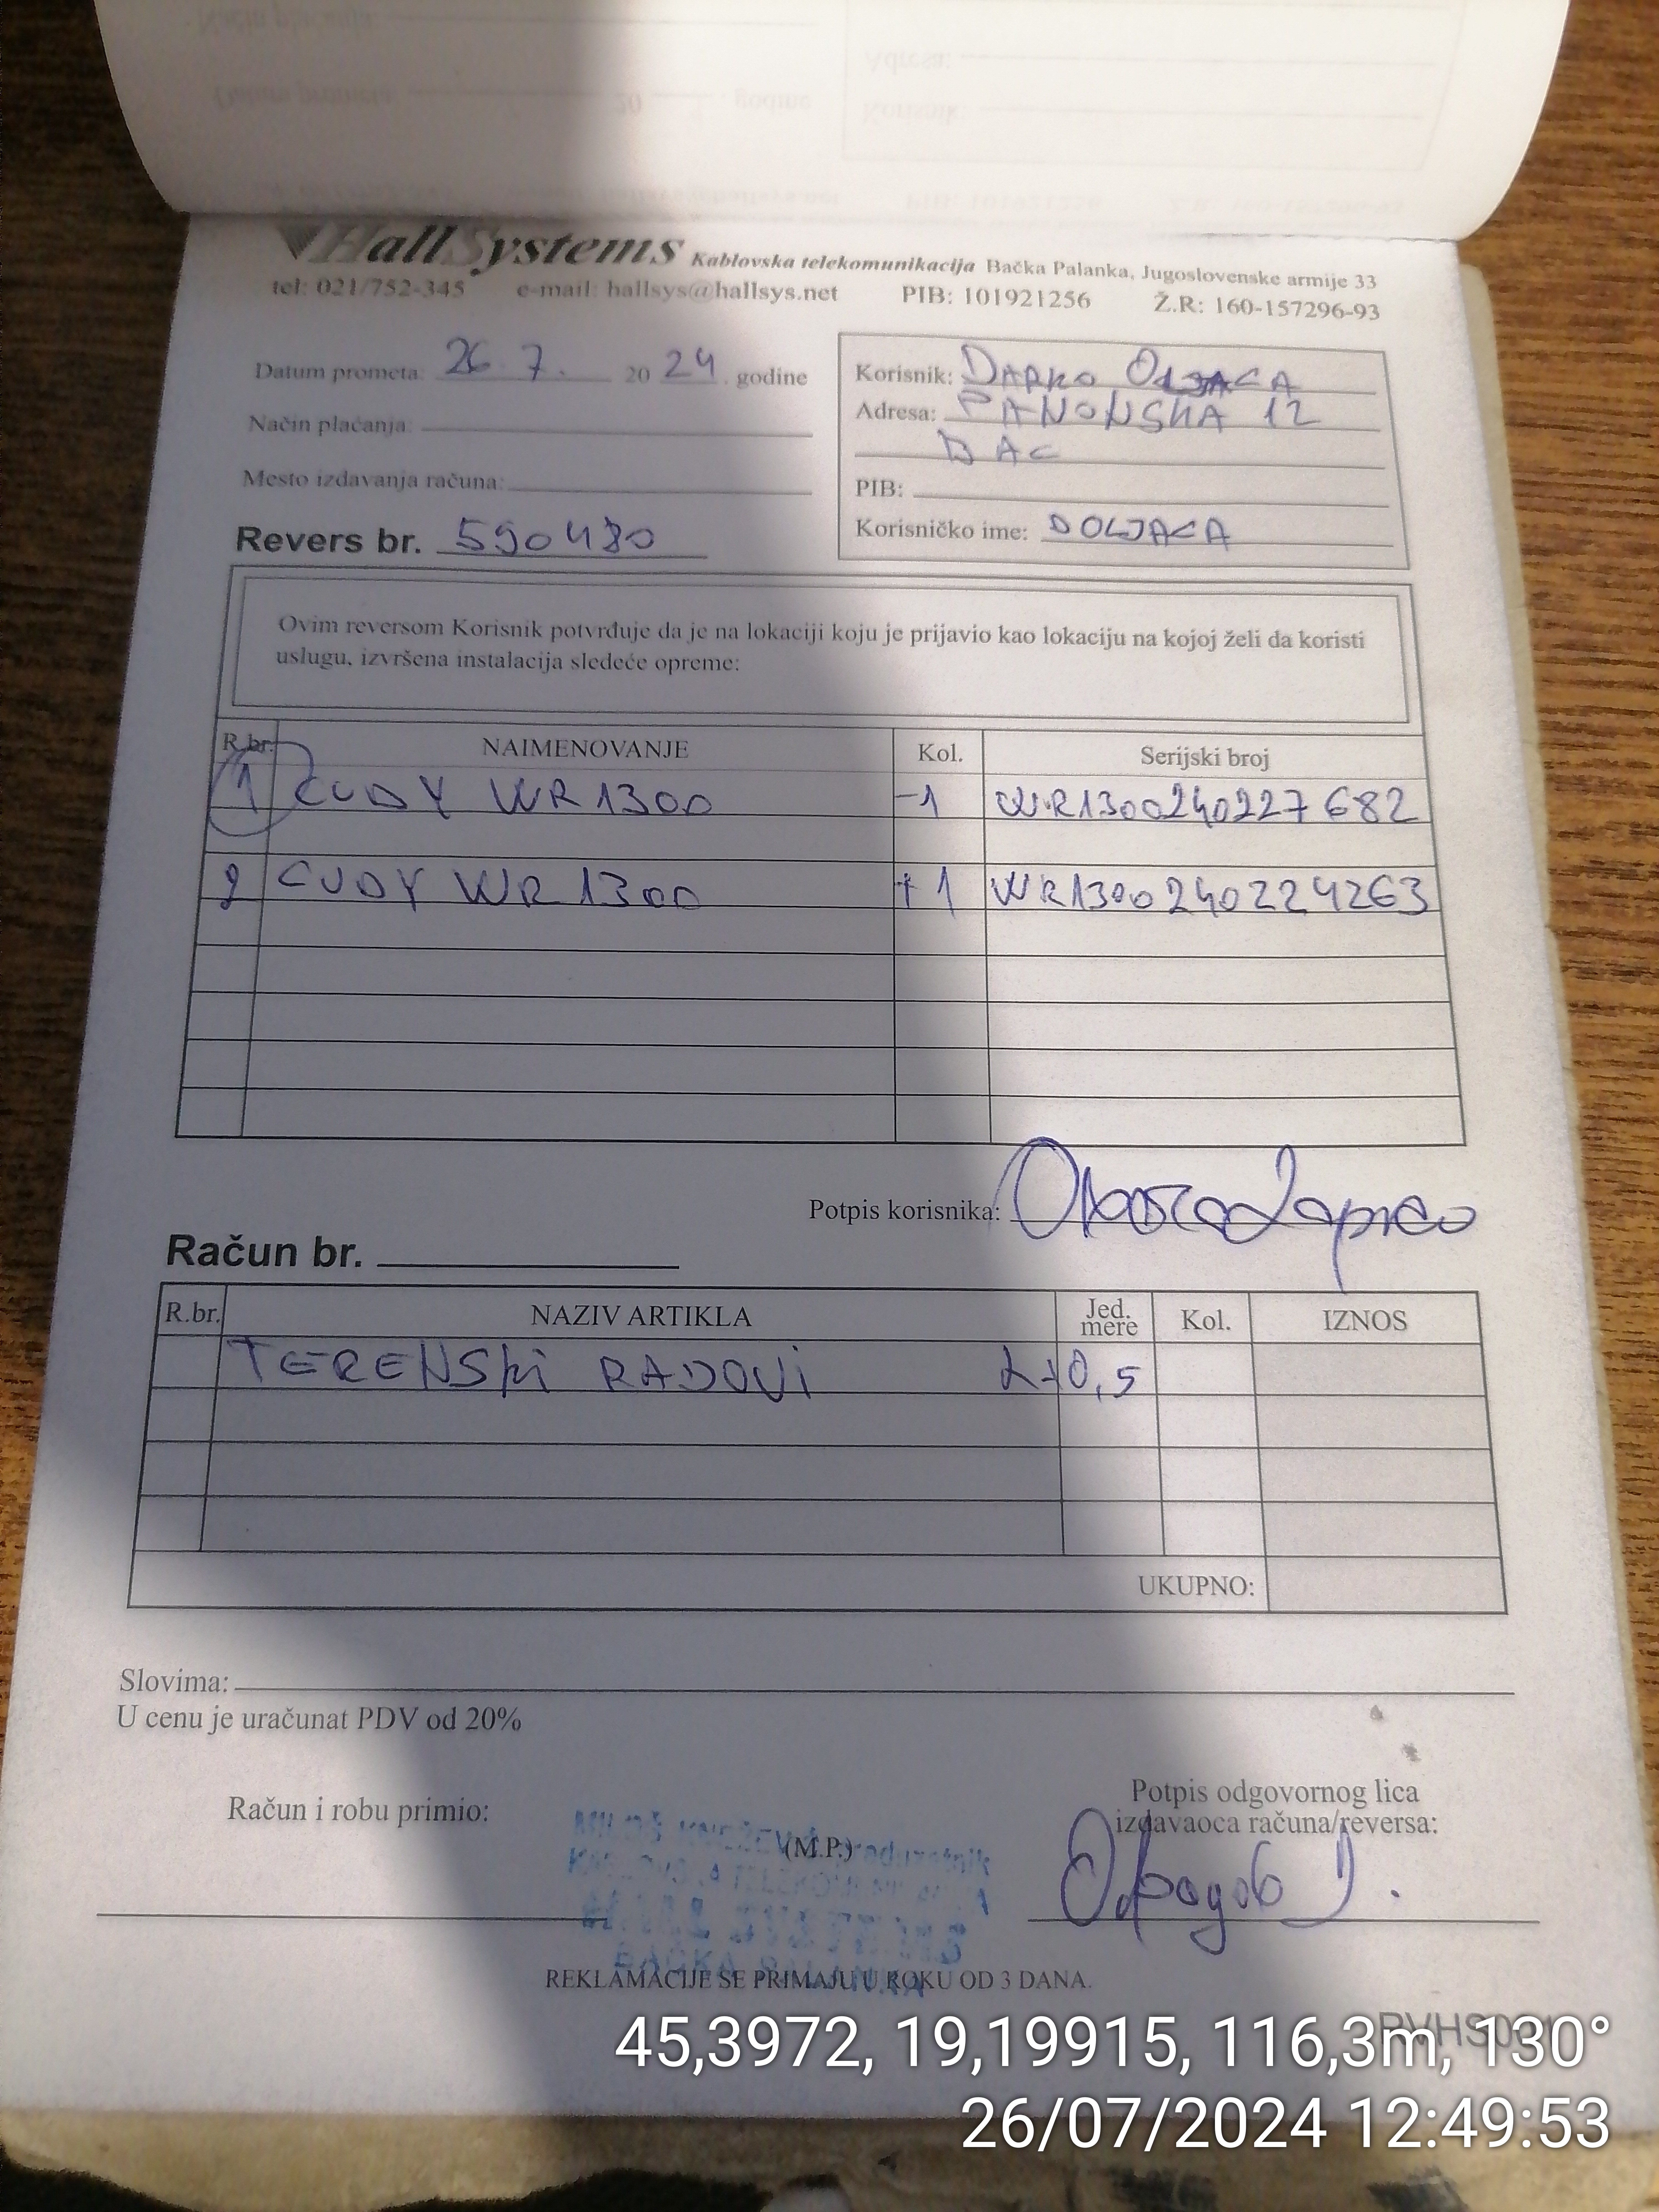 HallSystems Kablovska telekomunikacija Bačka Palanka, Jugoslovenske armije 33
tel: 021/752-345 e-mail: hallsys@hallsys.net PIB: 101921256 Ž.R: 160-157296-93
Datum prometa: 26 7. 20 24. godine
Način plaćanja:
Mesto izdavanja računa:
Revers br. 590480
Korisnik: DARKO OLJACA
Adresa: PANONSKA 12
BAC
PIB:
Korisničko ime: DOLJACA
Ovim reversom Korisnik potvrđuje da je na lokaciji koju je prijavio kao lokaciju na kojoj želi da koristi
uslugu, izvršena instalacija sledeće opreme:
R.br. NAIMENOVANJE Kol. Serijski broj
1 CUDY WR1300 -1 WR1300240227682
2 CUDY WR1300 +1 WR1300240224263
Potpis korisnika:
Račun br.
R.br. NAZIV ARTIKLA Jed. mere Kol. IZNOS
TERENSKI RADOVI 2+0,5
UKUPNO:
Slovima:
U cenu je uračunat PDV od 20%
Račun i robu primio:
(M.P.)
Potpis odgovornog lica
izdavaoca računa/reversa:
BAČKA PALANKA
REKLAMACIJE SE PRIMAJU U ROKU OD 3 DANA.
45,3972, 19,19915, 116,3m, 130°
26/07/2024 12:49:53